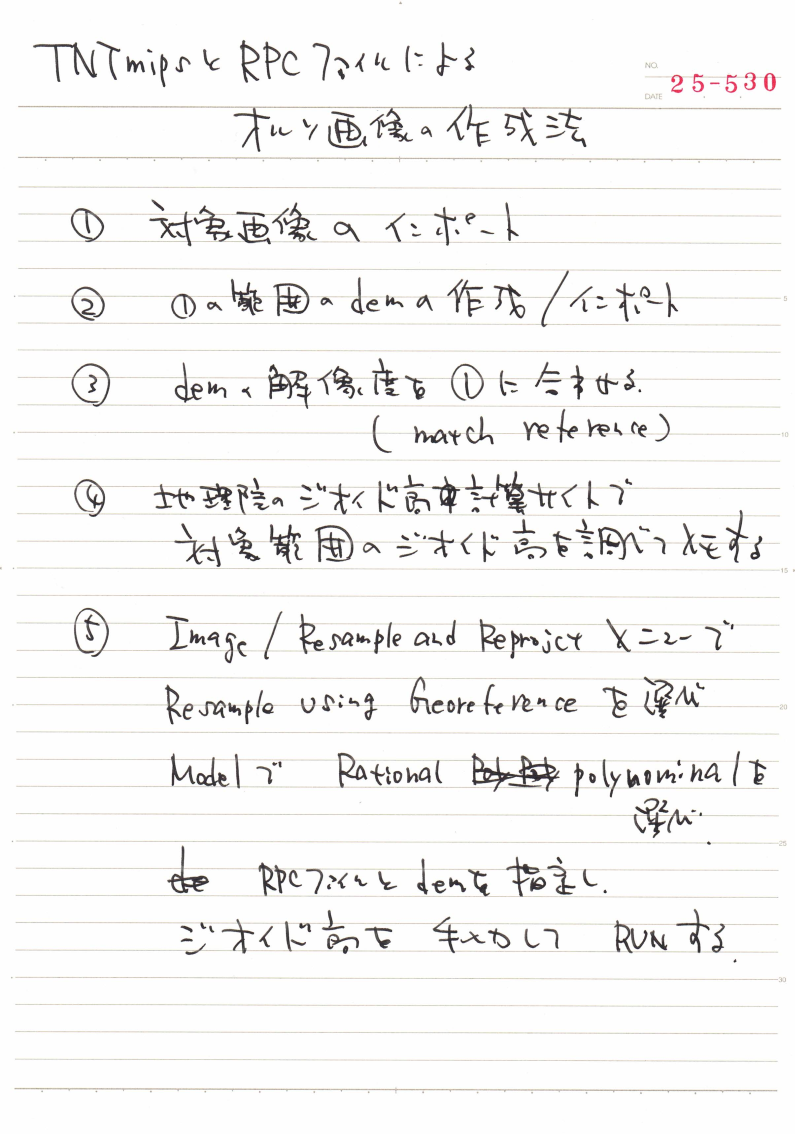 TNTmipsとRPCファイルによる
NO.
DATE
25-530
オルソ画像の作成法
① 対象画像のインポート
② ①の範囲のdemの作成/インポート
③ demの解像度を①に合わせる.
(match reference)
④ 地理院のジオイド高計算サイトで
対象範囲のジオイド高を調べてメモする
⑤ Image/Resample and Reproject メニューで
Resample using Georeference を選び
Modelで Rational polynominalを
選び.
RPCファイルとdemを指定し.
ジオイド高を 手入力して RUNする.
5
10
15
20
25
30